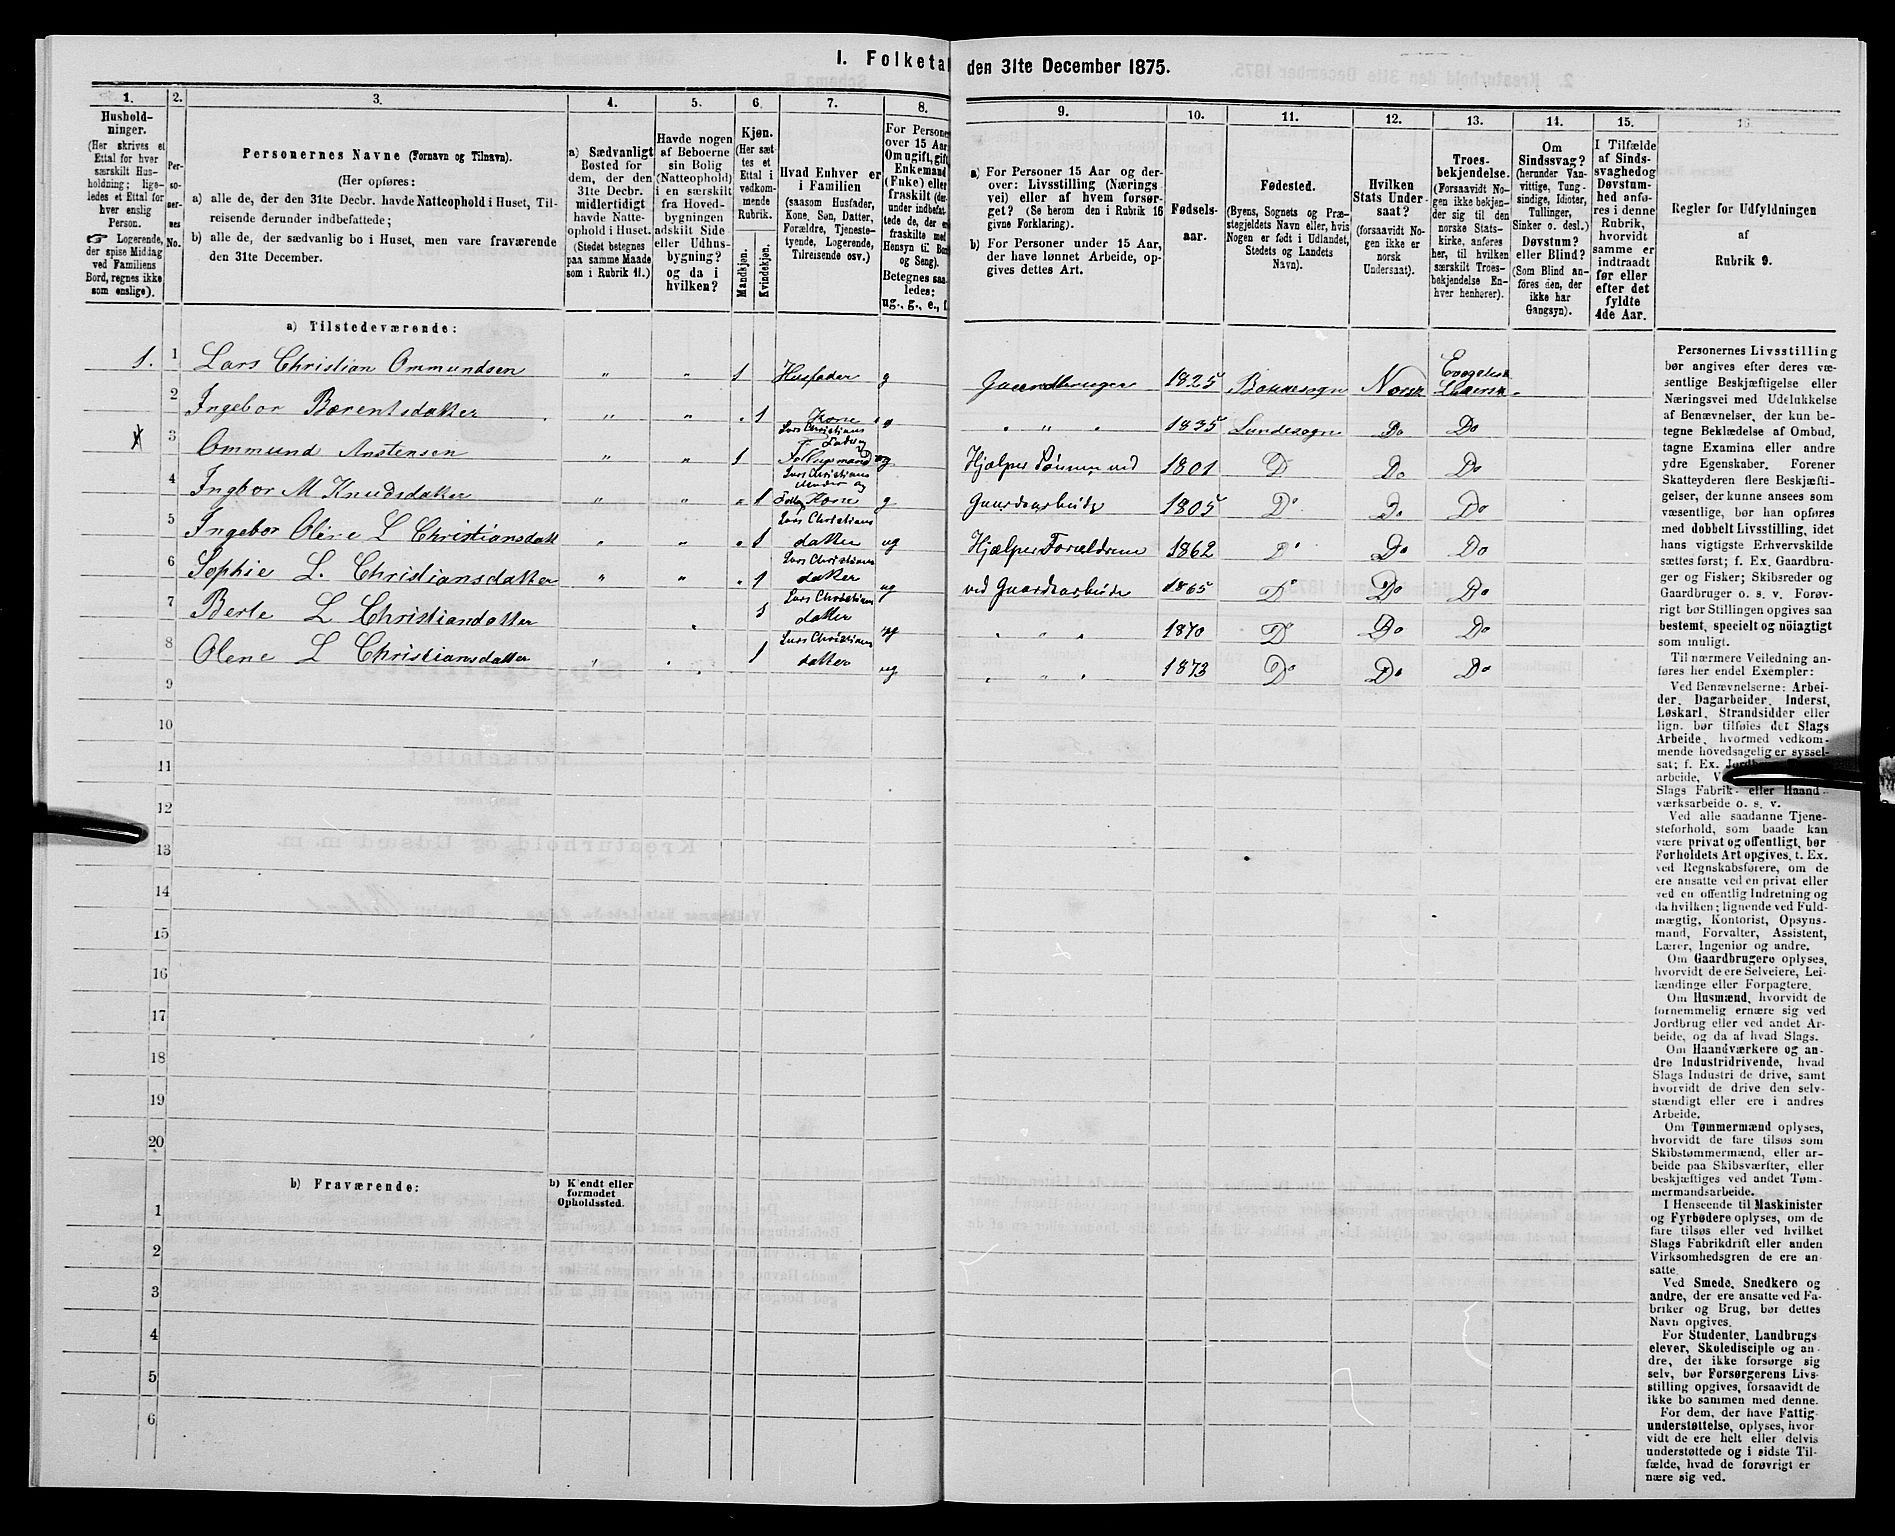 I. Folketal
den 31te December 1875.
1.
2.
3.
4.
5.
6.
7.
8.
9.
10.
11.
12.
13.
14.
15.
16.
Hushold-
ninger.
(Her skrives et
Ettal for hver
særskilt Hus-
holdning; lige-
ledes et Ettal for
hver enslig
Person.
☞ Logerende,
der spise Middag
ved Familiens
Bord, regnes ikke
som enslige).
Per-
so-
ner-
nes
No.
Personernes Navne (Fornavn og Tilnavn).
(Her opføres:
a) alle de, der den 31te Decbr. havde Natteophold i Huset, Til-
reisende derunder indbefattede;
b) alle de, der sædvanlig bo i Huset, men vare fraværende
den 31te December.
a) Sædvanligt
Bosted for
dem, der den
31te Decbr.
midlertidigt
havde Natte-
ophold i Huset.
(Stedet betegnes
paa samme Maade
som i Rubrik 11.)
Havde nogen
af Beboerne
sin Bolig
(Natteophold)
i en særskilt
fra Hoved-
bygningen
adskilt Side
eller Udhus-
bygning?
og da i
hvilken?
Kjøn.
(Her sæt-
tes et
Ettal i
vedkom-
mende
Rubrik.
Mandkjøn.
Kvindekjøn.
Hvad Enhver er
i Familien
(saasom Husfader,
Kone, Søn, Datter,
Forældre, Tjeneste-
tyende, Logerende,
Tilreisende osv.)
For Personer
over 15 Aar:
Om ugift, gift,
Enkemand
(Enke) eller
fraskilt (der-
under indbefat-
tede de, der ere
fraskilte med
Hensyn til Bord
og Seng).
Betegnes saa-
ledes:
ug., g., e., f.
a) For Personer 15 Aar og der-
over: Livsstilling (Nærings
vei) eller af hvem forsør-
get? (Se herom den i Rubrik 16
givne Forklaring).
b) For Personer under 15 Aar,
der have lønnet Arbeide, op-
gives dettes Art.
Fødsels-
aar.
Fødested.
(Byens, Sognets og Præ-
stegjeldets Navn eller, hvis
Nogen er født i Udlandet,
Stedets og Landets
Navn).
Hvilken
Stats Under-
saat?
(forsaavidt No-
gen ikke er
norsk
Undersaat).
Troes-
bekjendelse.
(Forsaavidt No-
gen ikke bekjen-
der sig til den
norske Stats-
kirke, anføres
her, til hvilken
særskilt Troes-
bekjendelse En-
hver henhører).
Om
Sindssvag?
(herunder Van-
vittige, Tung-
sindige, Idioter,
Tullinger,
Sinker o. desl.)
Døvstum?
eller Blind?
(Som Blind an-
føres den, der
ikke har
Gangsyn).
I Tilfælde
af Sinds-
svaghedog
Døvstum-
hed anfø-
res i denne
Rubrik,
hvorvidt
samme er
indtraadt
før eller
efter det
fyldte
4de Aar.
Regler for Udfyldningen
af
Rubrik 9.
a) Tilstedeværende:
1. 1 Lars Christian Ommundsen " " 1 Husfader g Gaardbruger 1825 Bakkesogn Norsk Evagelisk Lutersk
2 Ingebor Bærentsdatter " " " 1 Kone g " " " 1835 Lundesogn Do Do
3 Ommund Anstensen " " 1 Lars Christians Fader og Follugsmand Hjælper Sønnen ved 1801 D Do Do
4 Ingbor M Knudsdatter " " " 1 Lars Christians Moder og Kone g Gaardsarbeide 1805 Do Do Do
5 Ingebor Olene L Christiansdatt " " " 1 Lars Christians datter ug Hjælper Forældrene 1862 Do Do Do
6 Sophie L. Christiansdatter " " " 1 Lars Christians datter ug ved Gaardsarbeide 1865 D Do Do
7 Berte L Christiandatter " 1 Lars Christians datter ug " " " 1870 D Do Do
8 Olene L Christiansdatter " " 1 Lars Christians datter ug " " " 1873 Do Do Do
9
10
11
12
13
14
15
16
17
18
19
20
b) Fraværende:
b) Kjendt eller
formodet
Opholdssted.
1
2
3
4
5
6
Personernes Livsstilling
bør angives efter deres væ-
sentlige Beskjæftigelse eller
Næringsvei med Udelukkelse
af Benævnelser, der kun be-
tegne Beklædelse af Ombud,
tagne Examina eller andre
ydre Egenskaber. Forener
Skatteyderen flere Beskjæfti-
gelser, der kunne ansees som
væsentlige, bør han opføres
med dobbelt Livsstilling, idet
hans vigtigste Erhvervskilde
sættes først; f. Ex. Gaardbru-
ger og Fisker; Skibsreder og
Gaardbruger o. s. v. Forøv-
rigt bør Stillingen opgives saa
bestemt, specielt og nöiagtigt
som muligt.
Til nærmere Veiledning an-
føres her endel Exempler:
Ved Benævnelserne: Arbei-
der, Dagarbeider, Inderst,
Løskarl, Strandsidder eller
lign. bør tilføies det Slags
Arbeide, hvormed vedkom-
mende hovedsagelig er syssel-
sat; f. Ex.
arbeide,
Slags Fabrik- eller Haand-
værksarbeide o. s. v.
Ved alle saadanne Tjene-
steforhold, som baade kan
være privat og offentligt, bør
Forholdets Art opgives, t. Ex.
ved Regnskabsførere, om de
ere ansatte ved en privat eller
ved en offentlig Indretning og
da hvilken; lignende ved Fuld-
mægtig, Kontorist, Opsyns-
mand, Forvalter, Assistent,
Lærer, Ingeniør og andre.
Om Gaardbrugere oplyses,
hvorvidt de ere Selveiere, Lei-
lændinge eller Forpagtere.
Om Husmænd, hvorvidt de
fornemmelig ernære sig ved
Jordbrug eller ved andet Ar-
beide, og da af hvad Slags.
Om Haandværkere og an-
dre Industridrivende, hvad
Slags Industri de drive, samt
hvorvidt de drive den selv-
stændigt eller ere i andres
Arbeide.
Om Tømmermænd oplyses,
hvorvidt de fare tilsøs som
Skibstømmermænd, eller ar-
beide paa Skibsværfter, eller
beskjæftiges ved andet Tøm-
mermandsarbeide.
I Henseende til Maskinister
og Fyrbødere oplyses, om de
fare tilsøs eller ved hvilket
Slags Fabrikdrift eller anden
Virksomhedsgren de ere an-
satte.
Ved Smede, Snedkere og
andre, der ere ansatte ved Fa-
briker og Brug, bør dettes
Navn opgives.
For Studenter, Landbrugs
elever, Skoledisciple og an-
dre, der ikke forsørge sig
selv, bør Forsørgerens Livs-
stilling opgives, forsaavidt de
ikke bo sammen med denne.
For dem, der have Fattig-
understøttelse, oplyses, hvor-
vidt de ere helt eller delvis
understøttede og i sidste Til-
fælde, hvad de forøvrigt er
nære sig ved.